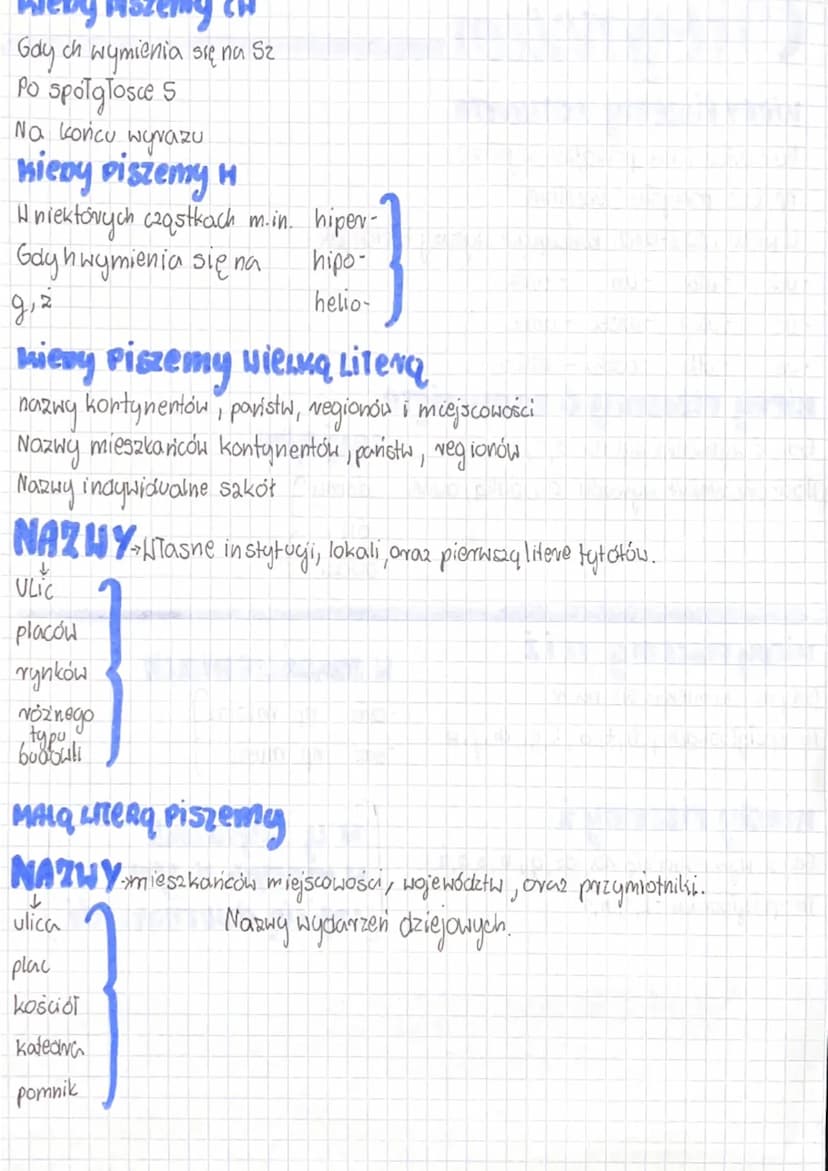 Kiedy piszemy CH
Gdy ch wymienia się na Sz
Po spółgłosce S
Na końcu wyrazu
Kiedy piszemy H
W niektórych cząstkach m.in. hiper-
Gdy h wymienia się na hipo-
g, ż helio-
Kiedy piszemy wielką literą
nazwy kontynentów, państw, regionów i miejscowości
Nazwy mieszkańców kontynentów, państw, regionów
Nazwy indywidualne szkół
NAZWY → Własne instytucji, lokali, oraz pierwszą litere tytółów.
↓
Ulic
placów
rynków
różnego
typu
budowli
MAŁą LITERą Piszemy
NAZWY → mieszkańców miejscowości, województw, oraz przymiotniki.
↓
ulica Nazwy wydarzeń dziejowych.
plac
kościół
katedra
pomnik